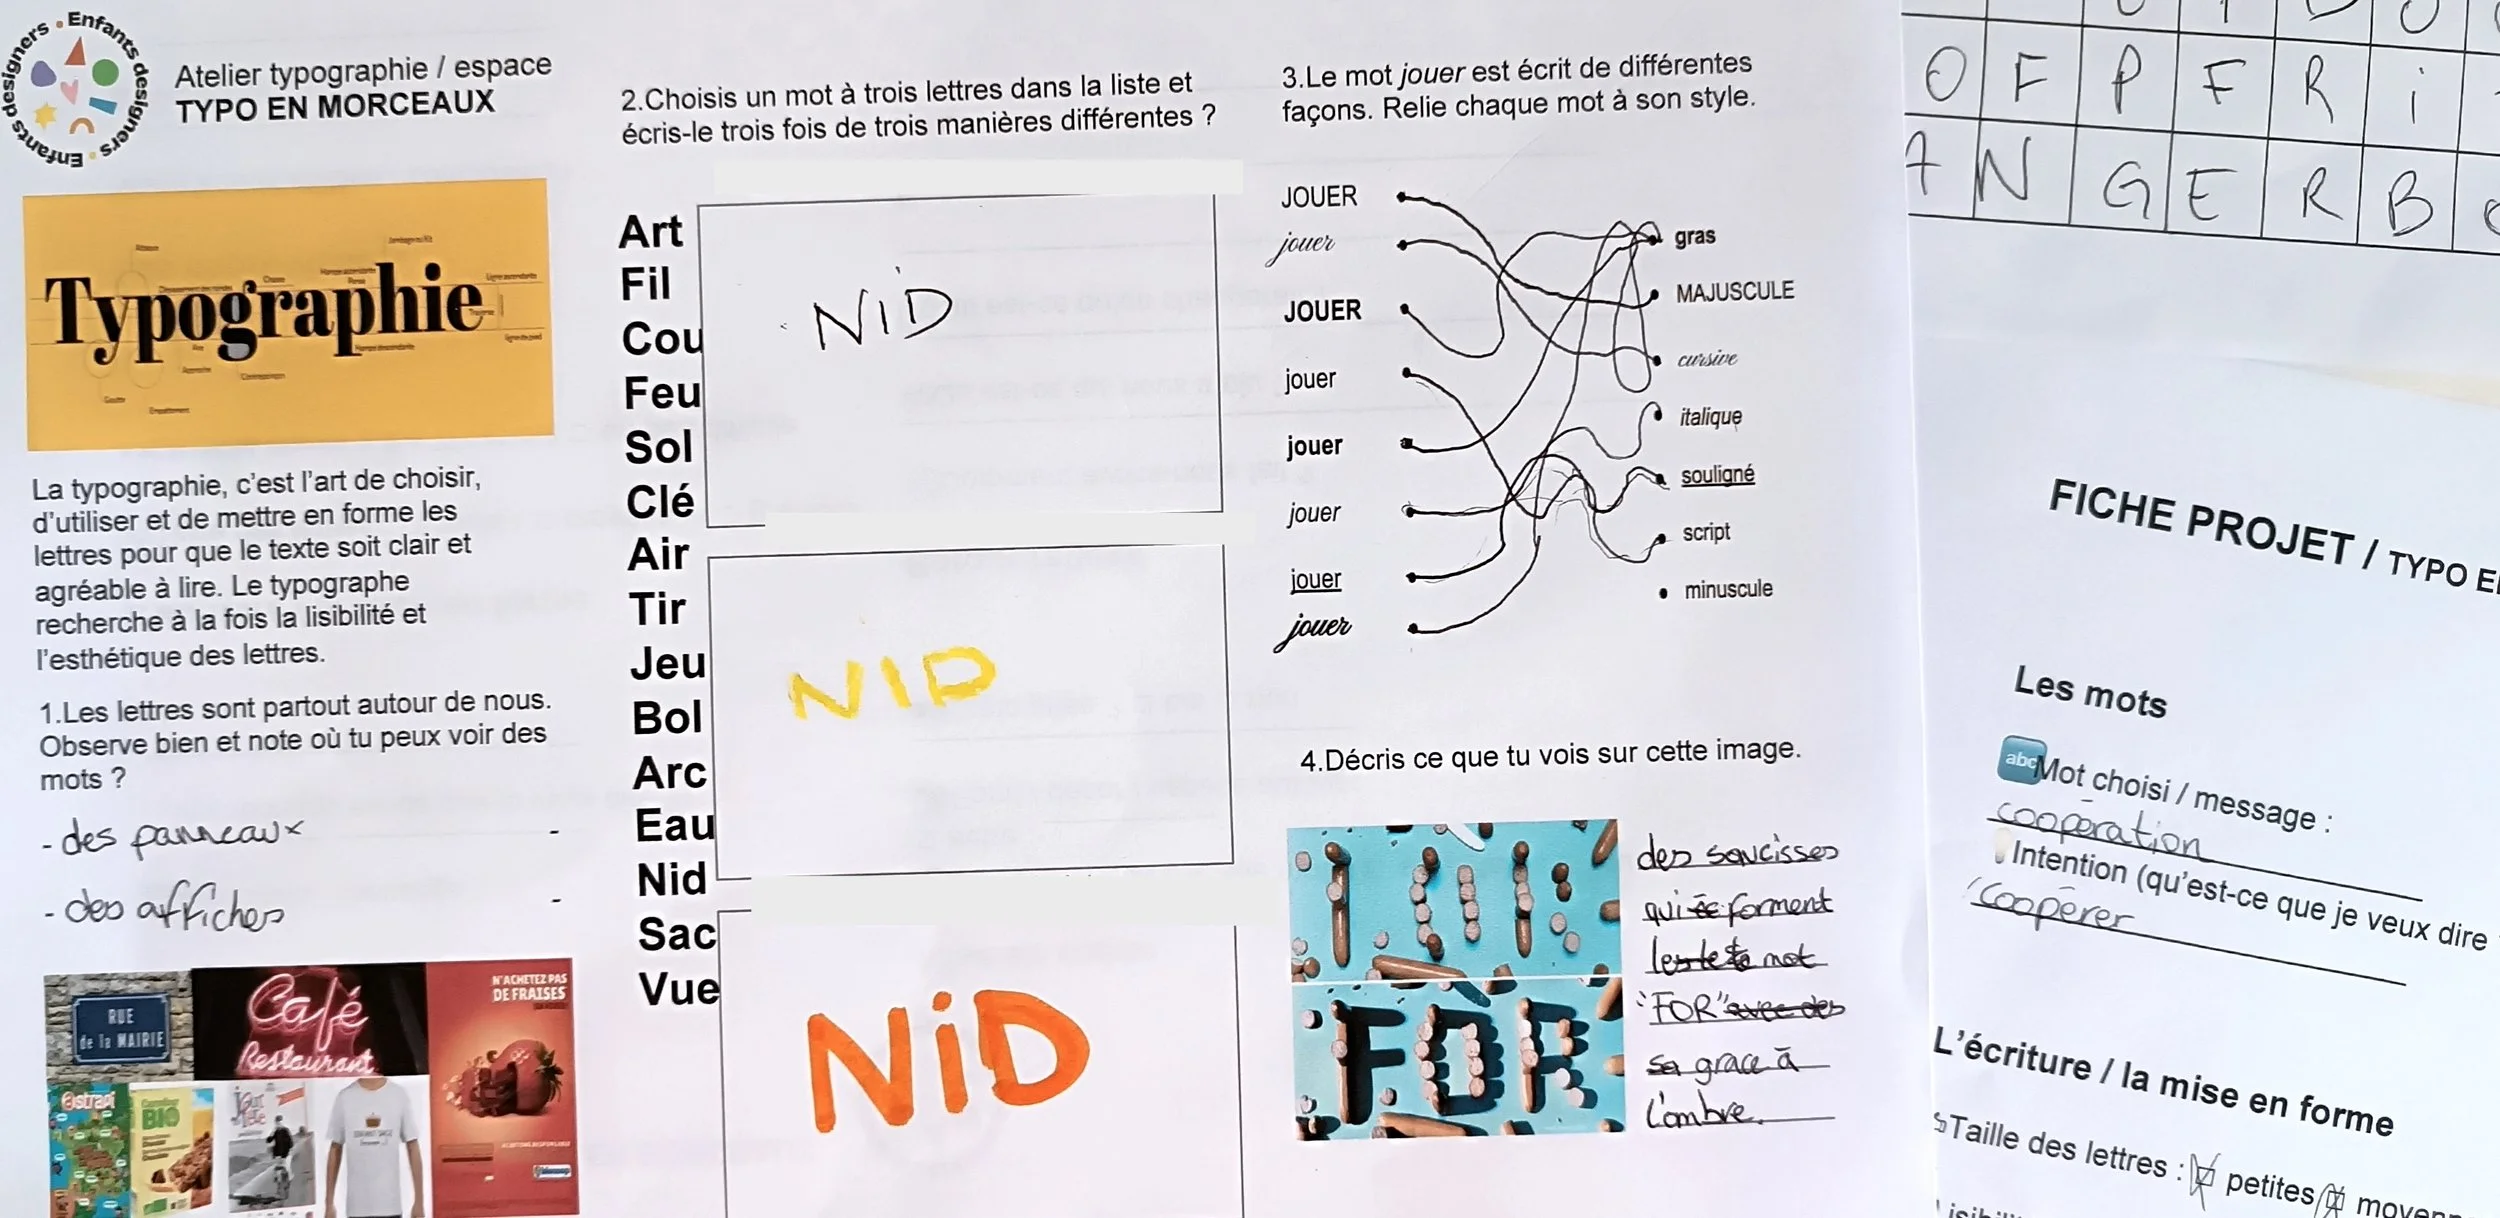 Enfants designers • Enfants designers
Atelier typographie / espace
TYPO EN MORCEAUX
Typographie
La typographie, c'est l'art de choisir,
d'utiliser et de mettre en forme les
lettres pour que le texte soit clair et
agréable à lire. Le typographe
recherche à la fois la lisibilité et
l'esthétique des lettres.
1.Les lettres sont partout autour de nous.
Observe bien et note où tu peux voir des
mots ?
- des panneaux -
- des affiches -
RUE
de la MAIRIE
Café
Restaurant
N'ACHETEZ PAS
DE FRAISES
BIO
2.Choisis un mot à trois lettres dans la liste et
écris-le trois fois de trois manières différentes ?
Art
Fil
Cou
Feu
Sol
Clé
Air
Tir
Jeu
Bol
Arc
Eau
Nid
Sac
Vue
NiD
NID
NiD
3.Le mot jouer est écrit de différentes
façons. Relie chaque mot à son style.
JOUER
jouer
JOUER
jouer
jouer
jouer
jouer
jouer
gras
MAJUSCULE
cursive
italique
souligné
script
minuscule
4.Décris ce que tu vois sur cette image.
FOR
des saucisses
qui forment
le mot
"FOR"
grace à
l'ombre.
O F P F R i
A N G E R B
FICHE PROJET / TYPO
Les mots
abc Mot choisi / message :
coopération
Intention (qu'est-ce que je veux dire
coopérer
L'écriture / la mise en forme
Taille des lettres : petites